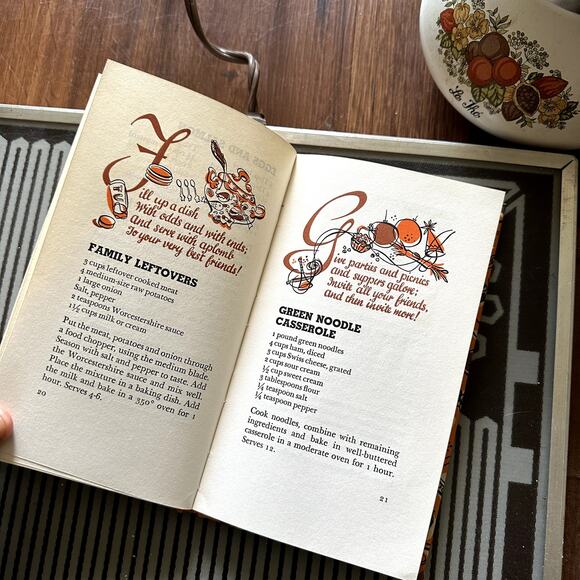 Fill up a dish
With odds and with ends;
And serve with aplomb
To your very best friends!
FAMILY LEFTOVERS
3 cups leftover cooked meat
4 medium-size raw potatoes
1 large onion
Salt, pepper
2 teaspoons Worcestershire sauce
1½ cups milk or cream
Put the meat, potatoes and onion through
a food chopper, using the medium blade.
Season with salt, and pepper to taste. Add
the Worcestershire sauce and mix well.
Place the mixture in a baking dish. Add
the milk and bake in a 350° oven for 1
hour. Serves 4-6.
20
Give parties and picnics
and suppers galore;
Invite all your friends,
and then invite more!
GREEN NOODLE
CASSEROLE
1 pound green noodles
4 cups ham, diced
3 cups Swiss cheese, grated
2 cups sour cream
½ cup sweet cream
3 tablespoons flour
¼ teaspoon salt
¼ teaspoon pepper
Cook noodles, combine with remaining
ingredients and bake in well-buttered
casserole in a moderate oven for 1 hour.
Serves 12.
21
Le Thé